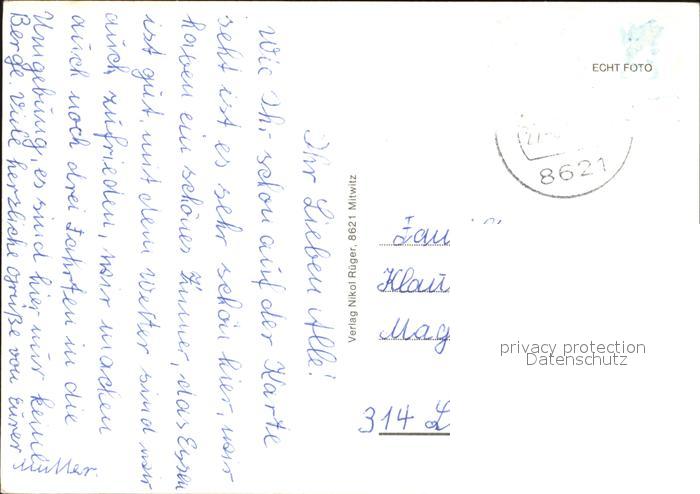 Ihr Lieben Alle!
Wie Ihr schon auf der Karte
seht ist es sehr schön hier, wir
haben ein schönes Zimmer, das Essen
ist gut, mit dem Wetter sind wir
auch zufrieden, wir machen
auch noch drei Fahrten in die
Umgebung, es sind hier nur keine
Berge. Viele herzliche Grüße von Eurer
Mutter.
Verlag Nikol Rüger, 8621 Mitwitz
ECHT FOTO
8621
Fam
Klau
Mag
314 L
privacy protection
Datenschutz